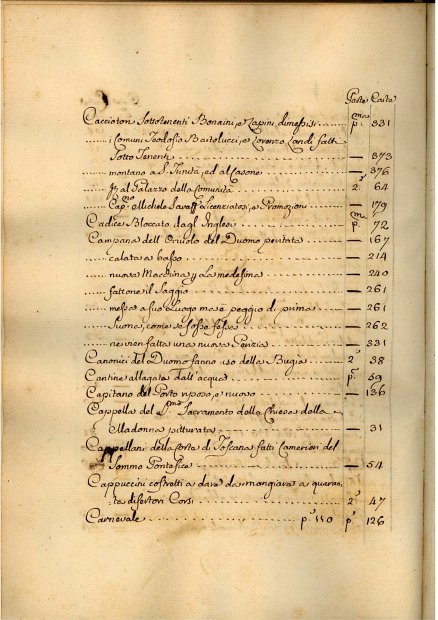 Parte Carta
Cacciatori Sottotenenti Bonaini, e Zapini dimessi ...... p.ma 331
...... Comuni Teodosio Bartolucci, e Lorenzo Landi fatti
Sotto Tenenti ...... — 373
...... montano a S. Trinità, ed al Casone ...... — 376
...... al Palazzo della Comunità ...... 2.a 64
...... Cap.no Michele licenziato, e Promozioni ...... — 179
Cadice Bloccato dagl' Inglesi ...... p.ma 72
Campana dell' Oriuolo del Duomo peritata ...... — 167
...... calata a basso ...... — 214
...... nuova Macchina p. La medesima ...... — 240
...... fattone il Saggio ...... — 261
...... messa a suo Luogo ma è peggio di prima ...... — 261
...... Suona, come se fosse fessa ...... — 262
...... ne vien fatta una nuova Perizia ...... — 331
Canonici del Duomo fanno uso della Bugia ...... 2.a 38
Cantine allagate dall' acqua ...... p.a 59
Capitano del Porto riposo, e nuovo ...... — 136
Cappella del S.mo Sacramento della Chiesa della
Madonna pitturata ...... — 31
Cappellani della Corte di Toscana fatti Camerieri del
Sommo Pontefice ...... — 54
Cappuccini costretti a dare da mangiare a quaran-
ta disertori Corsi ...... 2.a 47
Carnevale ...... p.a 110 p.a 126